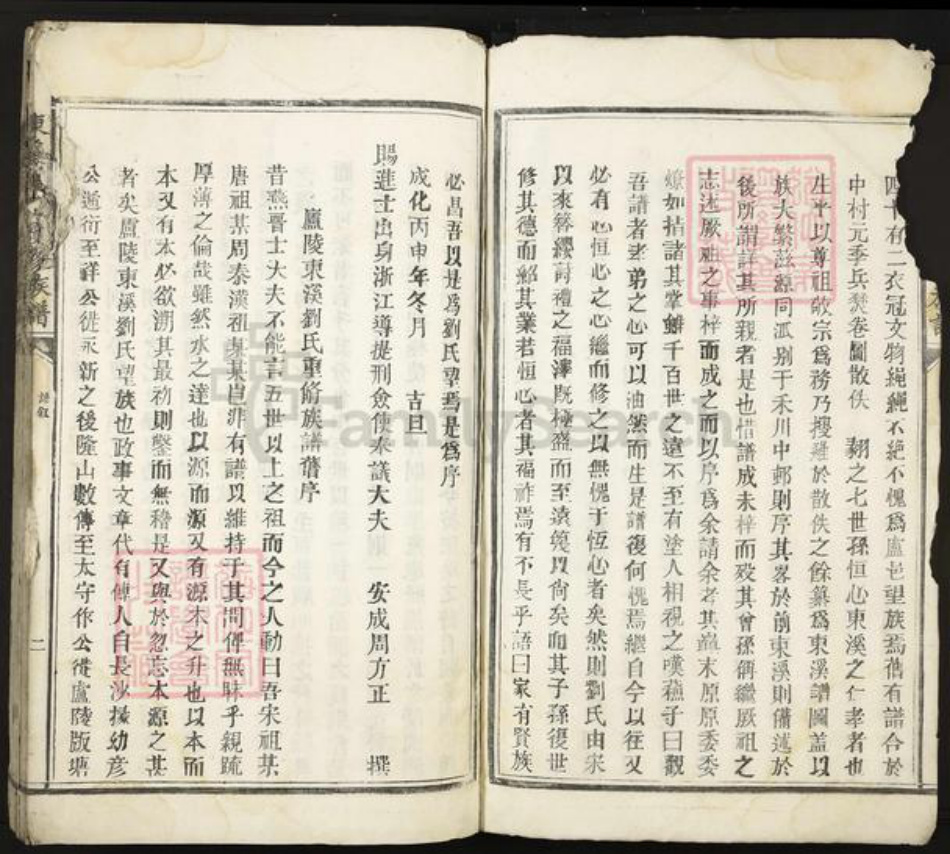 四十有二衣冠文物繩繩不絕不愧為盧邑望族焉舊有譜合於
中村元季兵燹卷圖散佚　翱之七世孫恒心東溪之仁孝者也
生平以尊祖敬宗為務乃搜羅於散佚之餘纂為東溪譜圖蓋以
族大繁蕃源同派别于禾川中邨則序其畧於前東溪則備述於
後所謂詳其所親者是也惜譜成未梓而歿其曾孫儔繼厥祖之
志述厥祖之事梓而成之而以序為余請余考其巔末原原委委
燎如指諸其掌雖千百世之遠不至有塗人相視之嘆蘓子曰觀
吾譜者孝弟之心可以油然而生是譜復何愧焉繼自今以往又
必有心恒心之心繼而修之以無愧于恆心者矣然則劉氏由宋
以來簪纓詩禮之福澤既極盛而至遠幾以尚矣而其子孫復世
修其德而紹其業若恒心者其福祚焉有不長乎語曰家有賢族
必昌吾以是為劉氏望焉是為序
成化丙申年冬月　吉旦
賜進士出身浙江導提刑僉使奉議大夫　安成周方正　撰
盧陵東溪劉氏重脩族譜舊序
昔燕晉士大夫不能言五世以上之祖而今之人動曰吾宋祖某
唐祖某周秦漢祖某某豈非有譜以維持于其間俾無昧乎親疏
厚薄之倫哉雖然水之達也以源而源又有源木之升也以本而
本又有本必欲溯其最初則鑿而無稽是又與於忽忘本源之甚
者矣盧陵東溪劉氏望族也政事文章代有傳人自長沙掾幼彥
公逓衍至祥公徙永新之後隆山數傳至太守作公徙盧陵版塘
東溪劉氏
族譜
譜敘
二